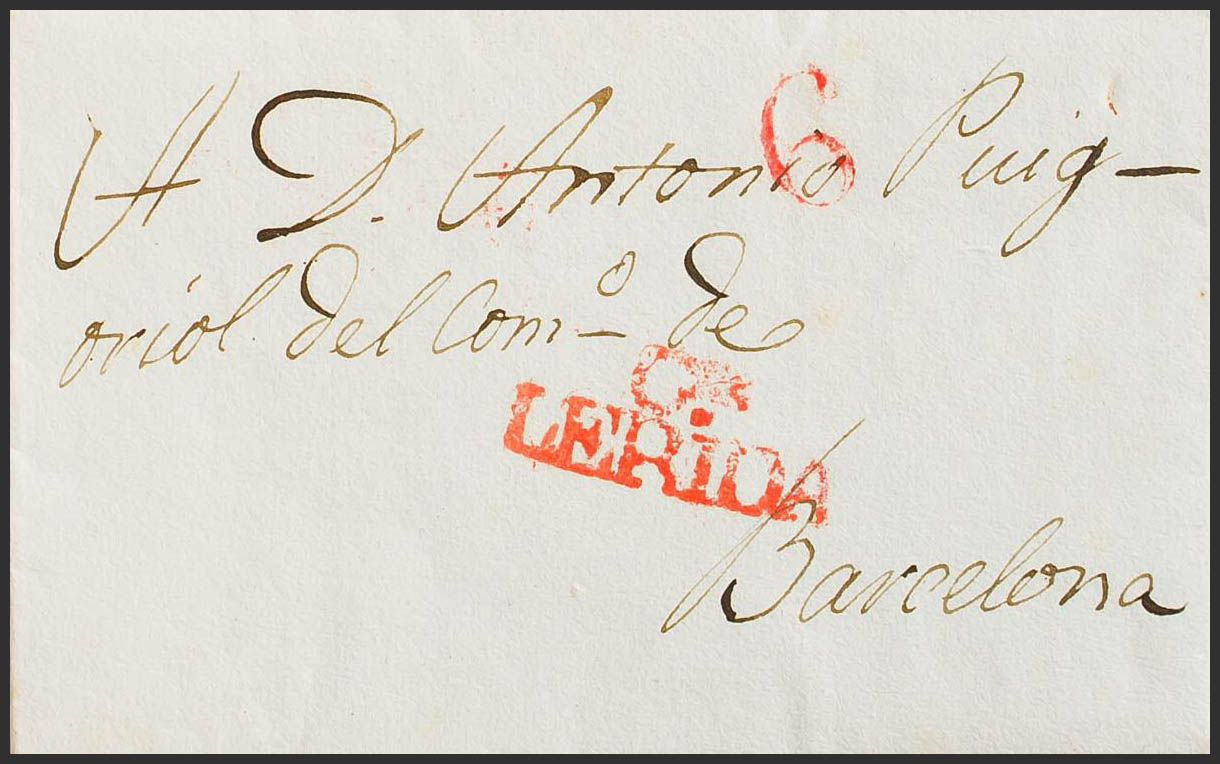 6
A D. Antonio Puig-
oriol del Com.º de
Cª
LERiDA
Barcelona